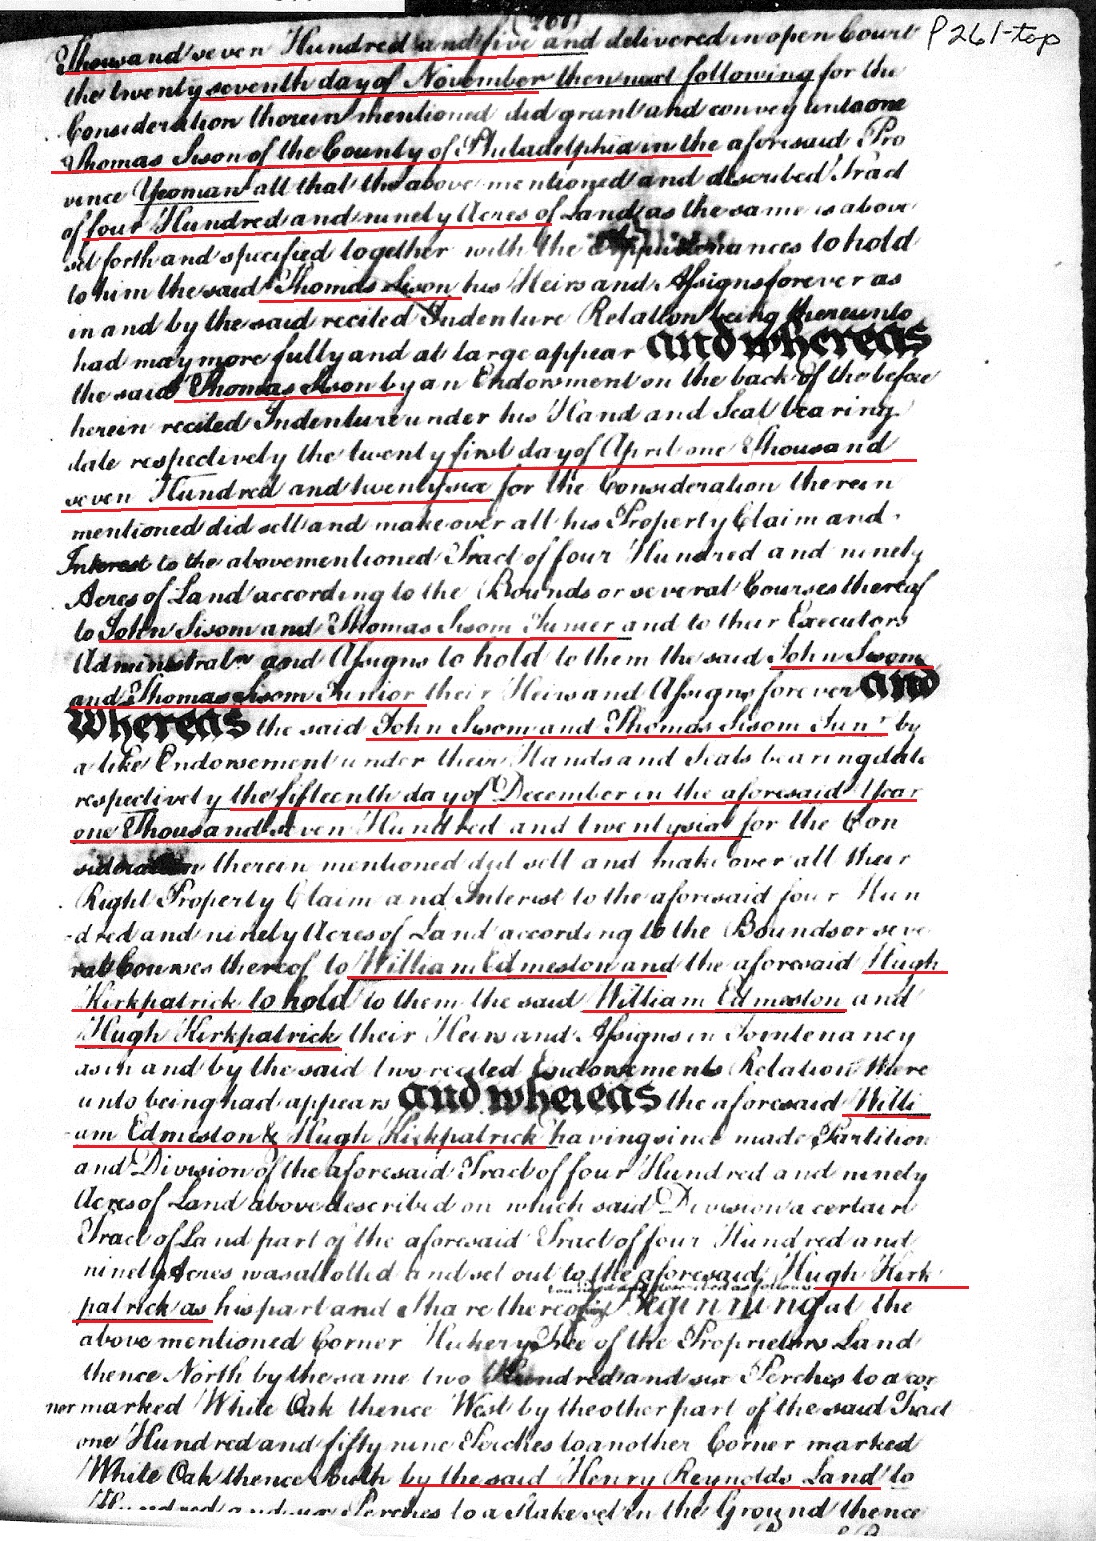 (261)
P261-top
Thousand seven Hundred and five and delivered in open Court
the twenty seventh day of November then next following for the
Consideration therein mentioned did grant and convey unto one
Thomas Sison of the County of Philadelphia in the aforesaid Pro
vince Yeoman all that the above mentioned and described Tract
of four Hundred and ninety Acres of Land as the same is above
set forth and specified together with the Appurtenances to hold
to him the said Thomas Sison his Heirs and Assigns forever as
in and by the said recited Indenture Relation being thereunto
had may more fully and at large appear and whereas
the said Thomas Sison by an Endorsment on the back of the before
herein recited Indenture under his Hand and Seal bearing
date respectively the twenty first day of April one Thousand
seven Hundred and twenty six for the Consideration therein
mentioned did sell and make over all his Property Claim and
Interest to the abovementioned Tract of four Hundred and ninety
Acres of Land according to the Bounds or several Courses thereof
to John Sisom and Thomas Sisom Junier and to their Executors
Administratrs and Assigns to hold to them the said John Sisom
and Thomas Sisom Junior their Heirs and Assigns forever and
Whereas the said John Sisom and Thomas Sisom Junr by
a like Endorsement under their Hands and Seals bearing date
respectively the fifteenth day of December in the aforesaid Year
one Thousand seven Hundred and twenty six for the Con
sideration therein mentioned did sell and make over all their
Right Property Claim and Interest to the aforesaid four Hun
-dred and ninety Acres of Land according to the Bounds or seve
ral Courses thereof to William Edmeston and the aforesaid Hugh
Kirkpatrick to hold to them the said William Edmeston and
Hugh Kirkpatrick their Heirs and Assigns in Jointenancy
as in and by the said two recited Endorsements Relation there
unto being had appears and whereas the aforesaid Willi
am Edmeston & Hugh Kirkpatrick having since made Partition
and Division of the aforesaid Tract of four Hundred and ninety
Acres of Land above described on which said Division a certain
Tract of Land part of the aforesaid Tract of four Hundred and
ninety Acres was allotted and set out to the aforesaid Hugh Kirk
as follows
patrick as his part and Share thereof Beginning at the
above mentioned Corner Hickery Tree of the Proprietors Land
thence North by the same two Hundred and six Perches to a cor
ner marked White Oak thence West by the other part of the said Tract
one Hundred and fifty nine Perches to another Corner marked
White Oak thence South by the said Henry Reynolds Land to
Hundred and six Perches to a Stake set in the Ground thence